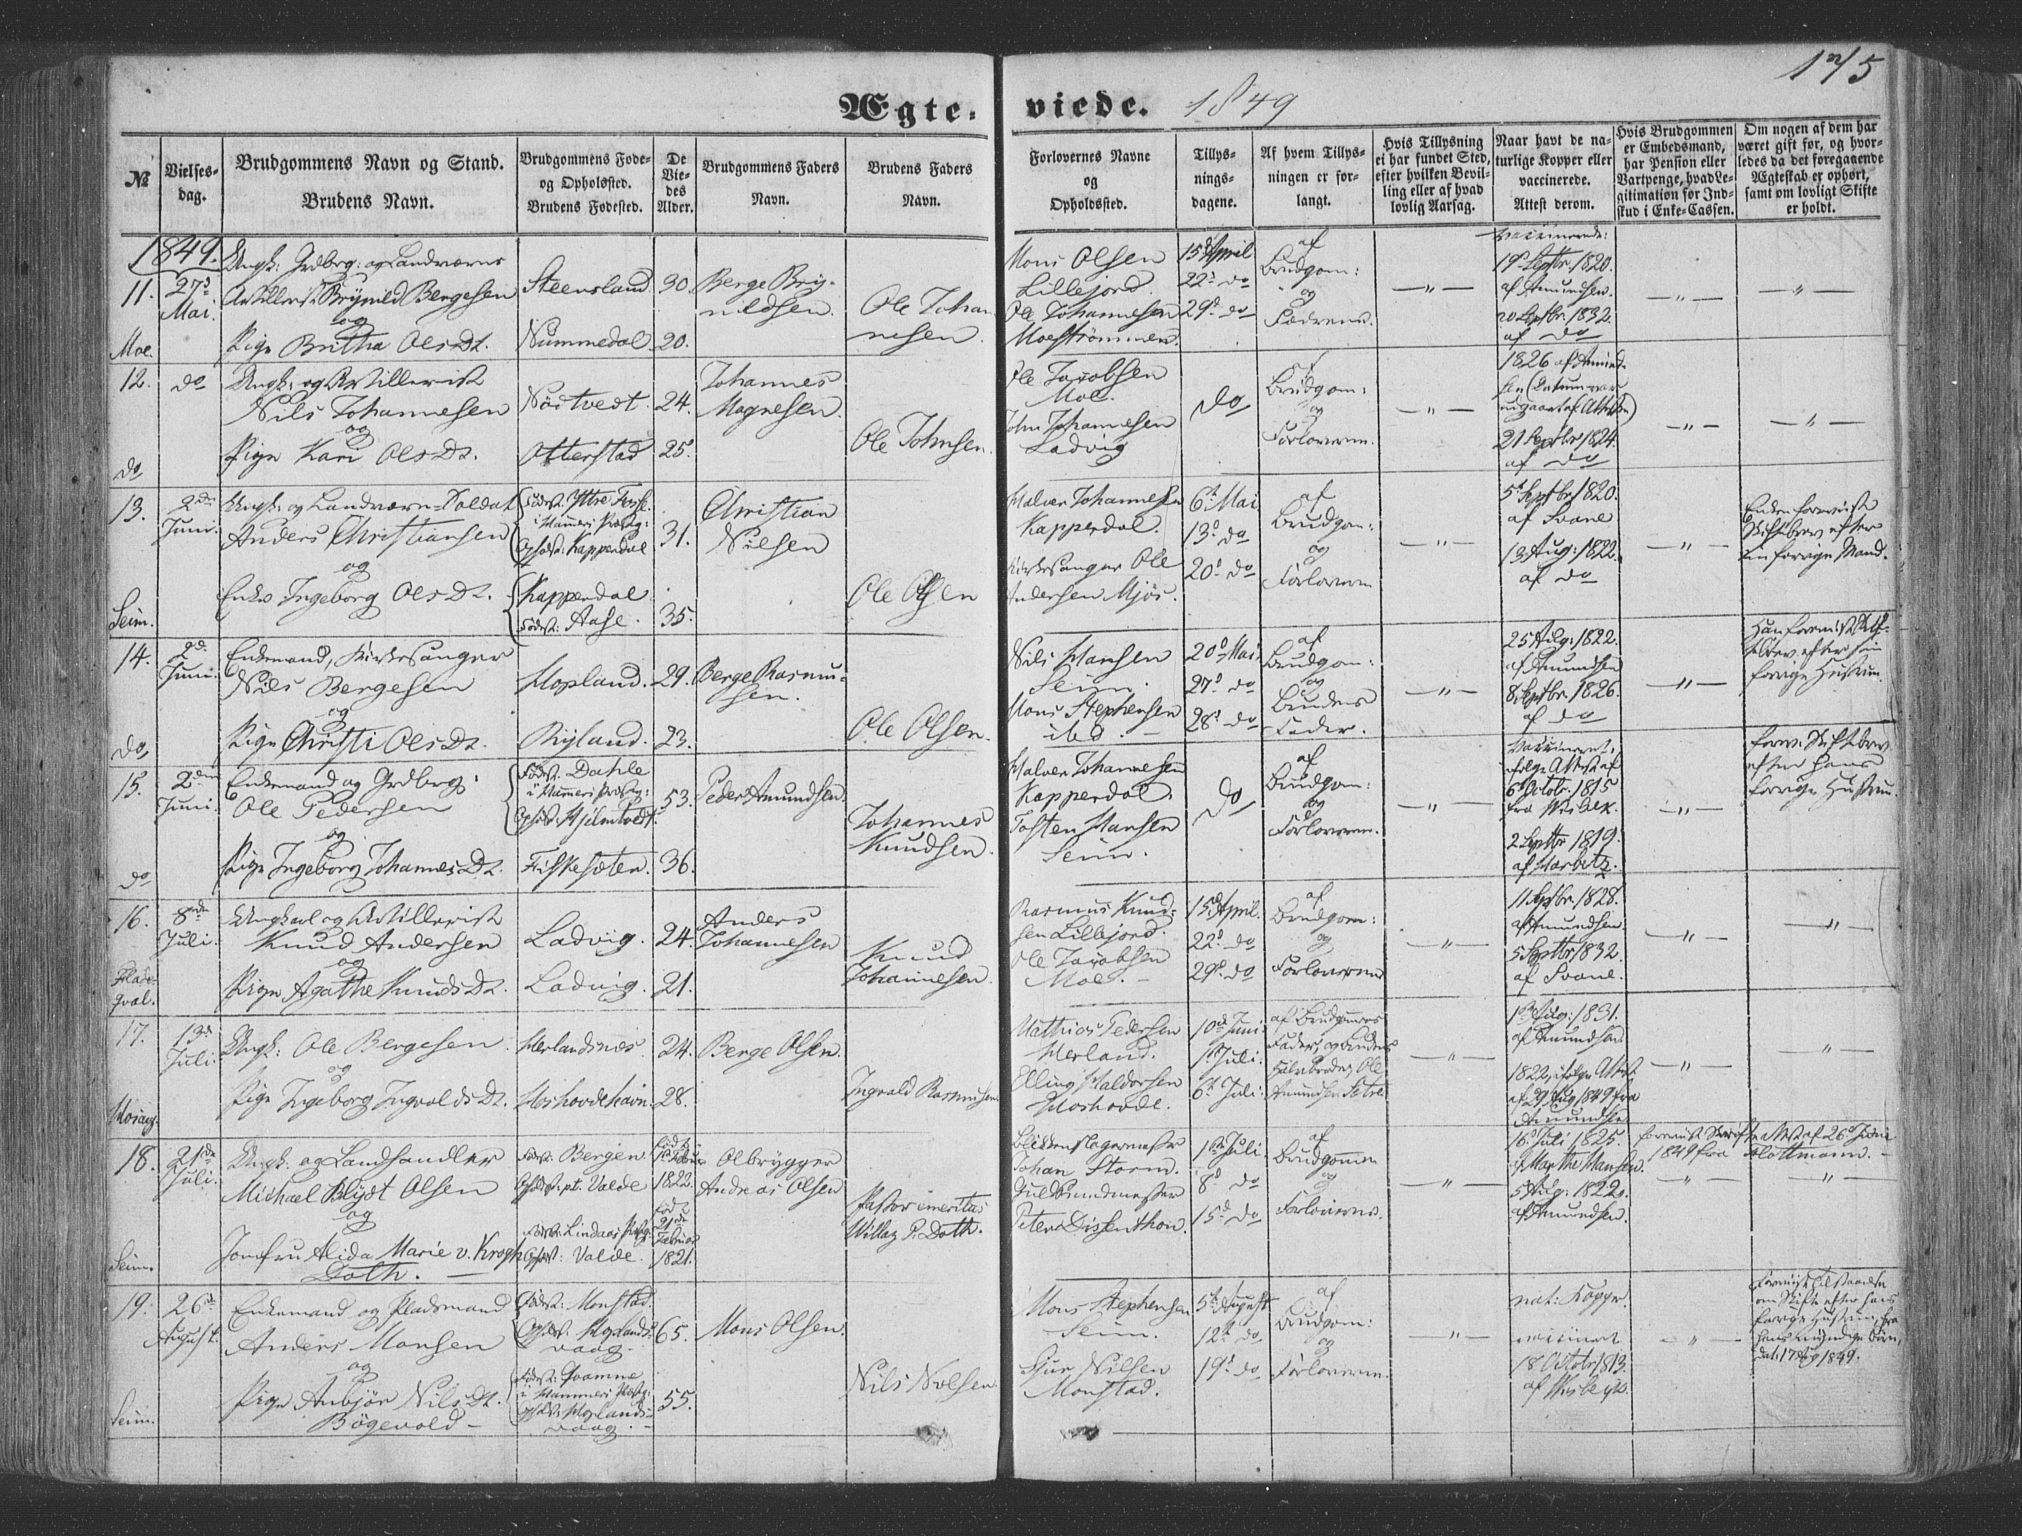 175
Ægte-
viede. 1849
№
Vielses-
dag.
Brudgommens Navn og Stand.
Brudens Navn.
Brudgommens Føde-
og Opholdsted.
Brudens Fødested.
De
Vie-
des
Alder.
Brudgommens Faders
Navn.
Brudens Faders
Navn.
Forlovernes Navne
og
Opholdsted.
Tillys-
nings-
dagene.
Af hvem Tillys-
ningen er for-
langt.
Hvis Tillysning
ei har fundet Sted,
efter hvilken Bevil-
ling eller af hvad
lovlig Aarsag.
Naar havt de na-
turlige Kopper eller
vaccinerede.
Attest derom.
Hvis Brudgommen
er Embedsmand,
har Pension eller
Vartpenge, hvad Le-
gitimation for Ind-
skud i Enke-Cassen.
Om nogen af dem har
været gift før, og hvor-
ledes da det foregaaende
Ægteskab er ophørt,
samt om lovligt Skifte
er holdt.
1849.
11.
27d
Mai.
Moe.
Ungk: Grdbrg: og Landværns
Artillerist Brynild Bergesen
og
Pige Britha OlesDt.
Steensland
Nummedal
30.
20.
Berge Bry-
nildsen.
Ole Johan-
nesen.
Mons Olsen
Lillejord.
Ole Johannesen
Moestrømmen.
15d April
22d do
29d do
af
Brudgom:
og
Fædrene.
— " —
vaccinerede:
19 Septbr 1820.
af Amundsen.
20 Septbr. 1832.
af do
— " —
— " —
12.
do
do
Ungk: og Artillerist
Nils Johannesen
og
Pige Kari OlsDt.
Nøstvedt
Otterstad
24.
25.
Johannes
Magnesen.
Ole Johnsen.
Ole Jacobsen
Moe.
John Johannesen
Ladvig
do
af
Brudgom:
og
Forloverne.
— " —
1826 af Amund-
sen (Datum var
udgaaet af Attesten)
21 Septbr 1824.
af do
— " —
— " —
13.
2den
Juni.
Seim.
Ungk: og Landværn-Soldat
Anders Christiansen
og
Enke Ingeborg OlesDt.
Fødest: Yttre
i Hammers Præstg:
Opholdst: Kapperdal
Kapperdal.
Fødest: Aase.
31.
35.
Christian
Nilsen
Ole Olsen
Halvor Johannesen
Kapperdal.
Kirkesanger Ole
Andersen Mjøs.
6te Mai
13d do
20d do
af
Brudgom:
og
Forloverne
— " —
5t Septbr 1820.
af Svane
13 Aug: 1822.
af do
— " —
Enken foreviste
Skiftebrev efter
sin forrige Mand.
14.
2d
Juni
do,
Enkemand, Kirkesanger
Nils Bergesen
og
Pige Christi OlesDt.
Hopland.
Ryland.
29.
23.
Berge Rasmu-
sen.
Ole Olsen.
Nils Hansen
Seim.
Mons Stephensen
ibd. —
20d Mai
27d do
28d do
af
Brudgom:
og
Brudens
Fader.
— " —
25 Aug: 1822.
af Amundsen
8 Septbr. 1826.
af do
— " —
Han foreviste Skif-
tebrev efter sin
forrige Hustru.
15.
2den
Juni.
do
Enkemand og Grdbrg:
Ole Pedersen
og
Pige Ingeborg JohannesDt.
Fødest: Dahle
i Hammers Præstg:
Opholdst: Hjelmtvedt.
Fiskesæten.
53.
36.
Peder Amundsen.
Johannes
Knudsen.
Halvor Johannesen
Kapperdal.
Tosten Hansen
Seim.
do
af
Brudgom:
og
Forloverne.
— " —
Vaccineret,
ifølge Attest af
6 Octobr. 1815
fra
2 Septbr 1819.
af Harbitz.
— " —
forev: Skiftebrev
efter hans
forrige Hustru.
16.
8nde
Juli.
Flade-
qval.
Ungkarl og Artillerist
Knud Andersen
og
Pige Agathe KnudsDt.
Ladvig.
Ladvig.
24.
21.
Anders
Johannesen
Knud
Johannesen.
Rasmus Knud-
sen Lillejord.
Ole Jacobsen
Moe. —
15d April.
22d do
29d do
af
Brudgom:
og
Forloverne
— " —
11 Septbr. 1828.
af Amundsen.
5 Septbr 1832.
af Svane.
— " —
— " —
17.
13de
Juli.
Ungk: Ole Bergesen
og
Pige Ingeborg IngvaldsDt.
Herlandsnæs.
Hoshovdehavn.
24.
28.
Berge Olsen.
Ingvald Rasmusen.
Mathias Pedersen
Herland.
Elling Haldorsen
Hoshovde.
10d Juni
1ste Juli.
6te Juli.
af Brudgommens
Fader, og Brudens
Halvbroder, Ole
Amundsen Sætre
— " —
1ste Aug: 1831.
af Amundsen
1822, ifølge Attest
af 29 Aug 1849 fra
Amundsen
— " —
— " —
18.
21de
Juli.
Seim.
Ungk: og Landhandler
Michael Blydt Olsen
og
Jomfru Alida Marie v. Krogh
Doth. —
Fødest: Bergen
Opholdst: pt. Valde
Fødest: Lindaas Præstg:
Opholdst: Valde.
født
1822.
født
21de
Februar
1821.
Ølbrygger
Andreas Olsen
Pastor emeritus
Willaz P. Doth.
Blikkenslagermester
Johan Storm.
Guldsmedmester
Peter Dissenthon.
1ste Juli
8d do
15d do
af
Brudgommen
og
Forloverne.
— " —
16d Juli 1825.
af Marthe Hansen.
5 Aug: 1822.
af Amundsen.
foreviist Attest af 26d Juni
1849 fra Flottmann. —
— " —
— " —
19.
26de
August.
Seim.
Enkemand og Pladsmand
Anders Monsen
og
Pige Anbjør NilsDt.
Bøgevold —
Fødest: Monstad
Opholdst: Hoplands-
vaag.
Fødest: Qvamme
i Hammers Præstg:
Opholdst: Hoplands-
vaag. —
65.
55.
Mons Olsen.
Nils Nilsen
Mons Stephensen
Seim.
Sjur Nilsen
Monstad.
5te August
12te do
19d do
af
Brudgom:
og
Forloverne.
— " —
nat: Kopper.
vaccineret
18 Octobr 1813.
af
— " —
foreviist Tilstaaelse
om Skifte efter hans
forrige Hustru, fra
hans myndige Børn,
dat: 17 Aug 1849.